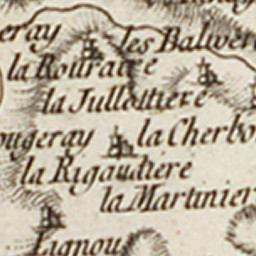 eray
les Baluere
la Rouraire
la Jullottiere
ougeray la Cherbo
la Rigaudiere
la Martinier
Lignou